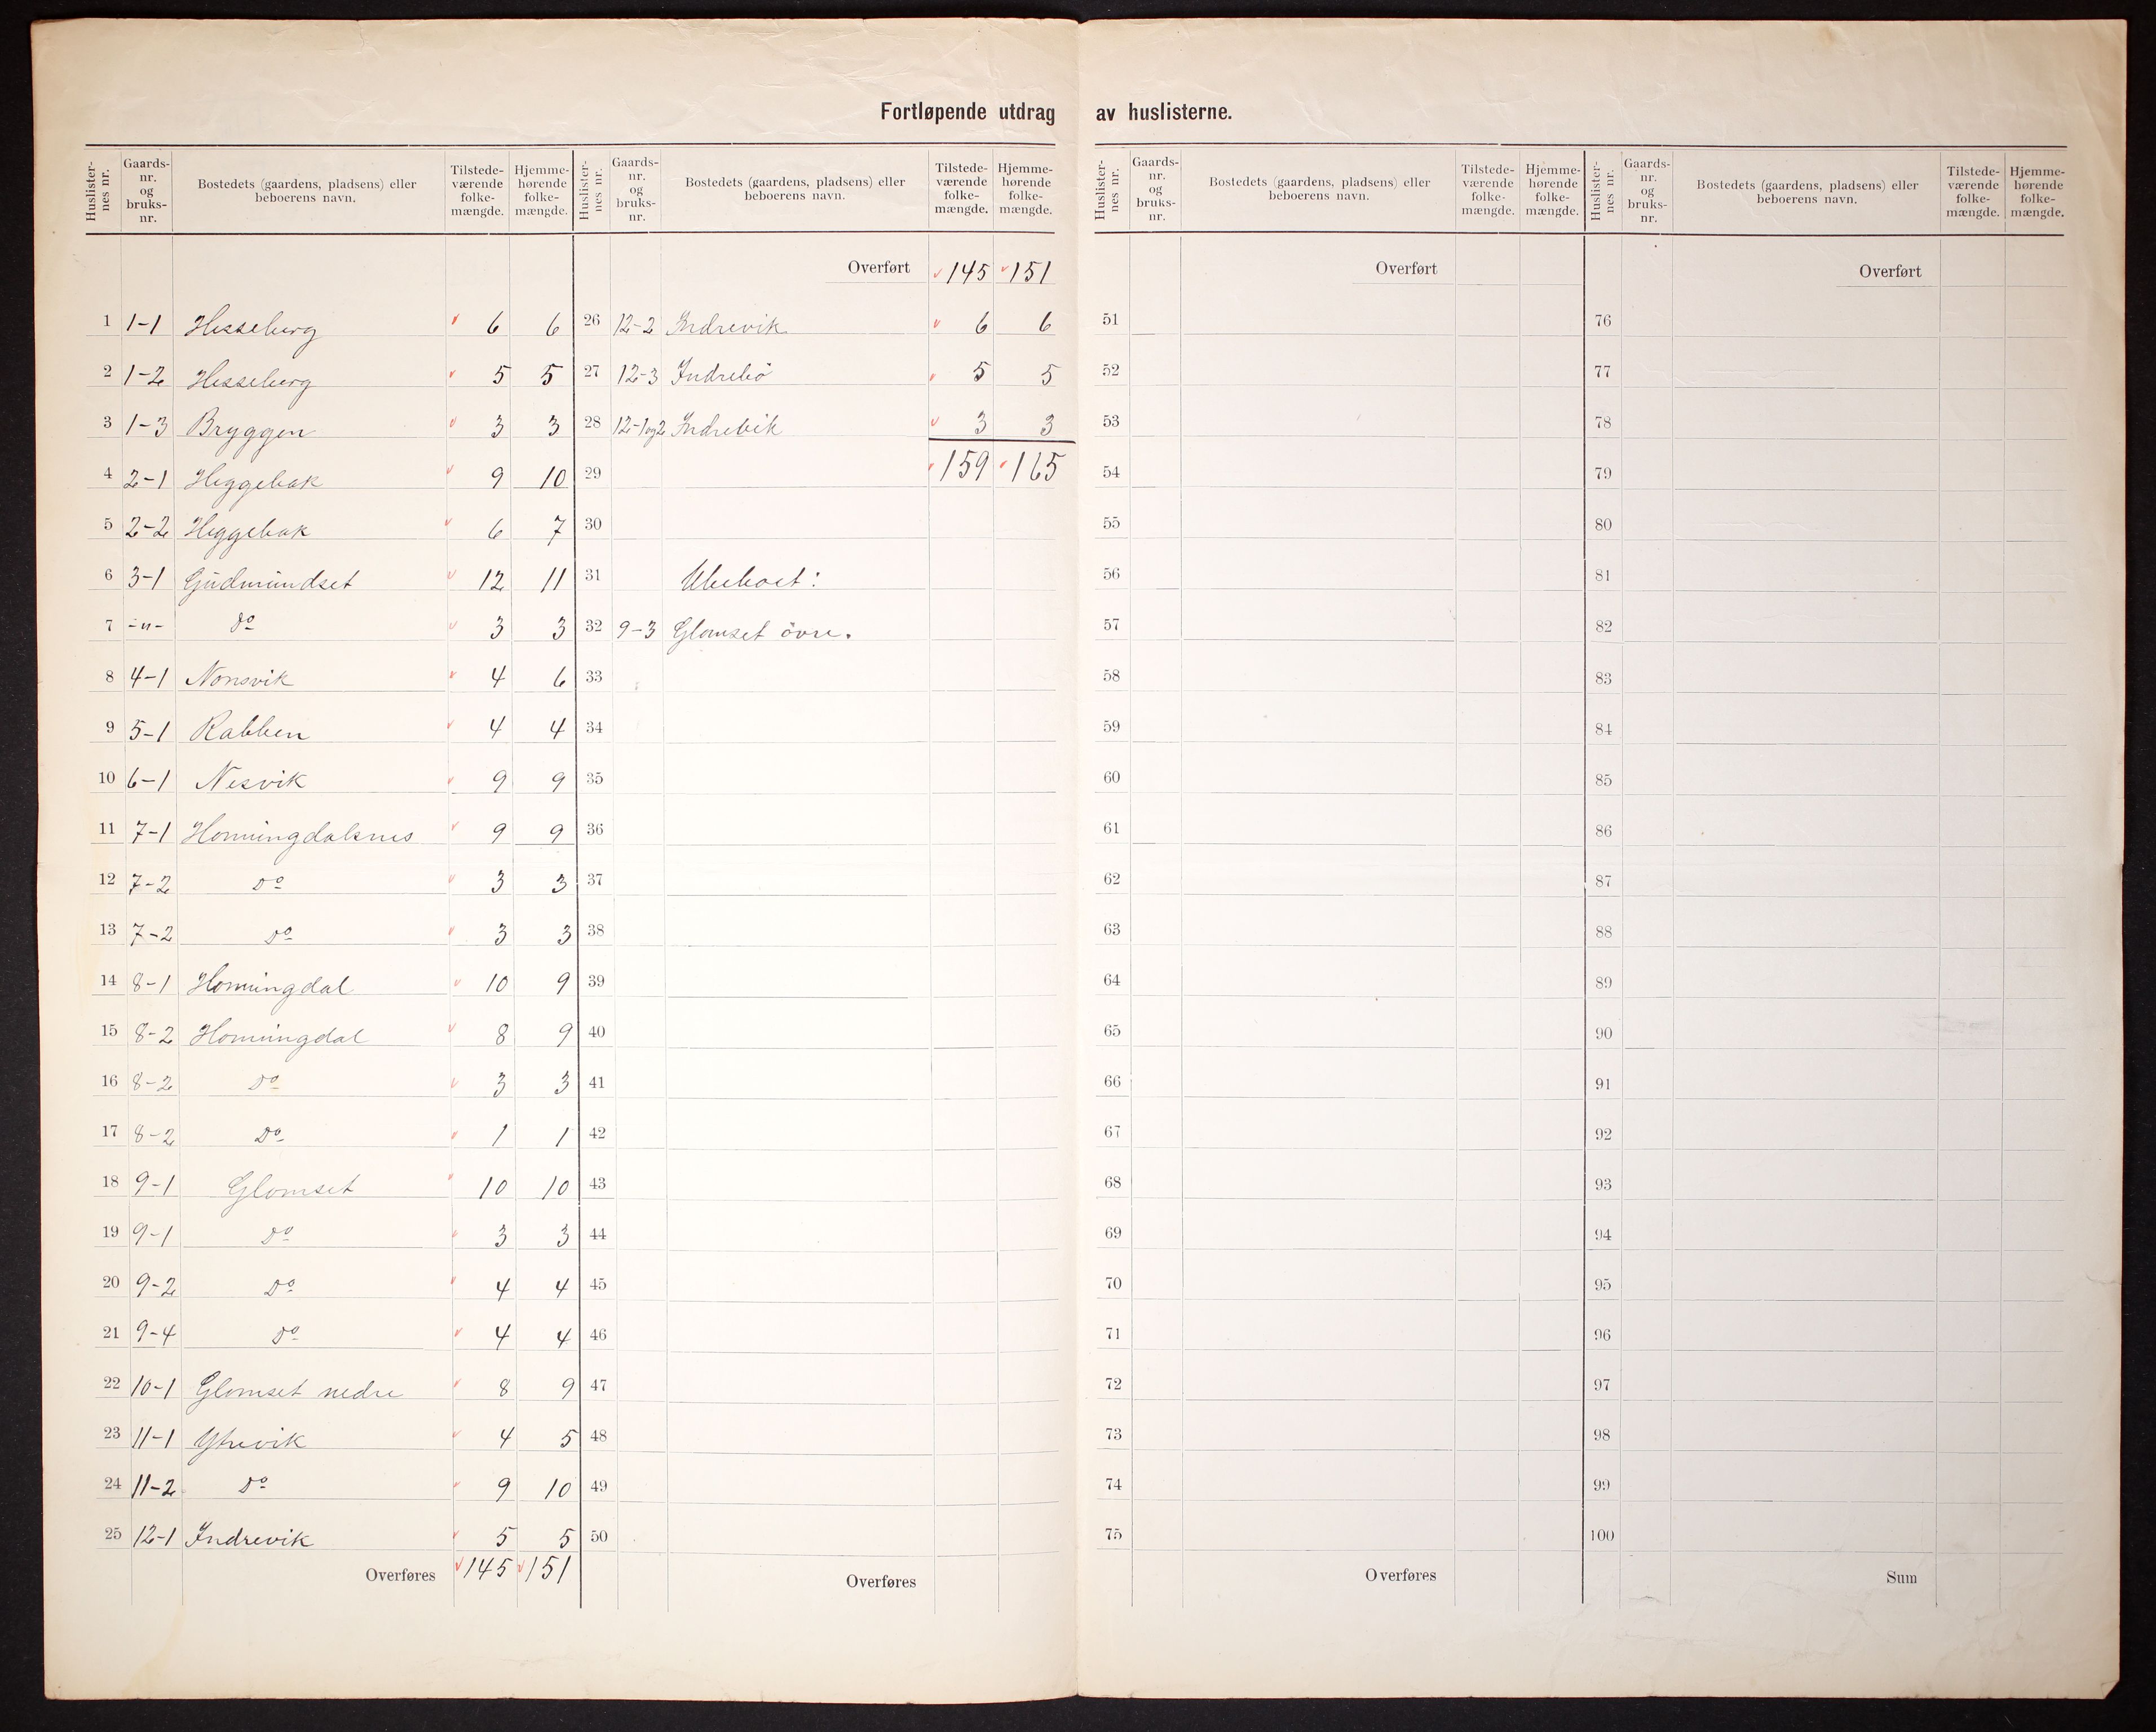 Fortløpende utdrag av huslisterne.
Huslisternes nr. | Gaards-nr. og bruks-nr. | Bostedets (gaardens, pladsens) eller beboerens navn. | Tilstede-værende folke-mængde. | Hjemme-hørende folke-mængde.
1 1-1 Hesseberg 6 6
2 1-2 Hesseberg 5 5
3 1-3 Bryggen 3 3
4 2-1 Heggebak 9 10
5 2-2 Heggebak 6 7
6 3-1 Gudmundset 12 11
7 -"- Do 3 3
8 4-1 Nonsvik 4 6
9 5-1 Rabben 4 4
10 6-1 Nesvik 9 9
11 7-1 Honningdalsnes 9 9
12 7-2 Do 3 3
13 7-2 Do 3 3
14 8-1 Honningdal 10 9
15 8-2 Honningdal 8 9
16 8-2 Do 3 3
17 8-2 Do 1 1
18 9-1 Glomset 10 10
19 9-1 Do 3 3
20 9-2 Do 4 4
21 9-4 Do 4 4
22 10-1 Glomset nedre 8 9
23 11-1 Ytrevik 4 5
24 11-2 Do 9 10
25 12-1 Indrevik 5 5
Overføres 145 151
Huslisternes nr. | Gaards-nr. og bruks-nr. | Bostedets (gaardens, pladsens) eller beboerens navn. | Tilstede-værende folke-mængde. | Hjemme-hørende folke-mængde.
Overført 145 151
26 12-2 Indrevik 6 6
27 12-3 Indrebö 5 5
28 12-1og2 Indrevik 3 3
29 159 165
30
31 Ubeboet:
32 9-3 Glomset övre.
33
34
35
36
37
38
39
40
41
42
43
44
45
46
47
48
49
50
Overføres
Huslisternes nr. | Gaards-nr. og bruks-nr. | Bostedets (gaardens, pladsens) eller beboerens navn. | Tilstede-værende folke-mængde. | Hjemme-hørende folke-mængde.
Overført
51
52
53
54
55
56
57
58
59
60
61
62
63
64
65
66
67
68
69
70
71
72
73
74
75
Overføres
Huslisternes nr. | Gaards-nr. og bruks-nr. | Bostedets (gaardens, pladsens) eller beboerens navn. | Tilstede-værende folke-mængde. | Hjemme-hørende folke-mængde.
Overført
76
77
78
79
80
81
82
83
84
85
86
87
88
89
90
91
92
93
94
95
96
97
98
99
100
Sum